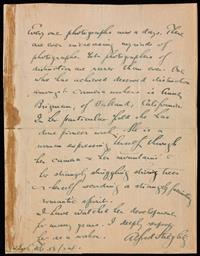 Every one photographs now a days. There
are ever increasing myriads of
photographs. Yet photographers of
distinction are rarer than ever. One
who has achieved deserved distinction
amongst camera workers is Annie
Brigman, of Oakland, California.
In her particular field she has
done pioneer work. She is a
woman expressing herself through
her camera & her mountains &
her strangely struggling shivering trees
& herself revealing a strangely
romantic spirit.
I have watched her development
for many years. I deeply respect
her as a worker.
Alfred Stieglitz